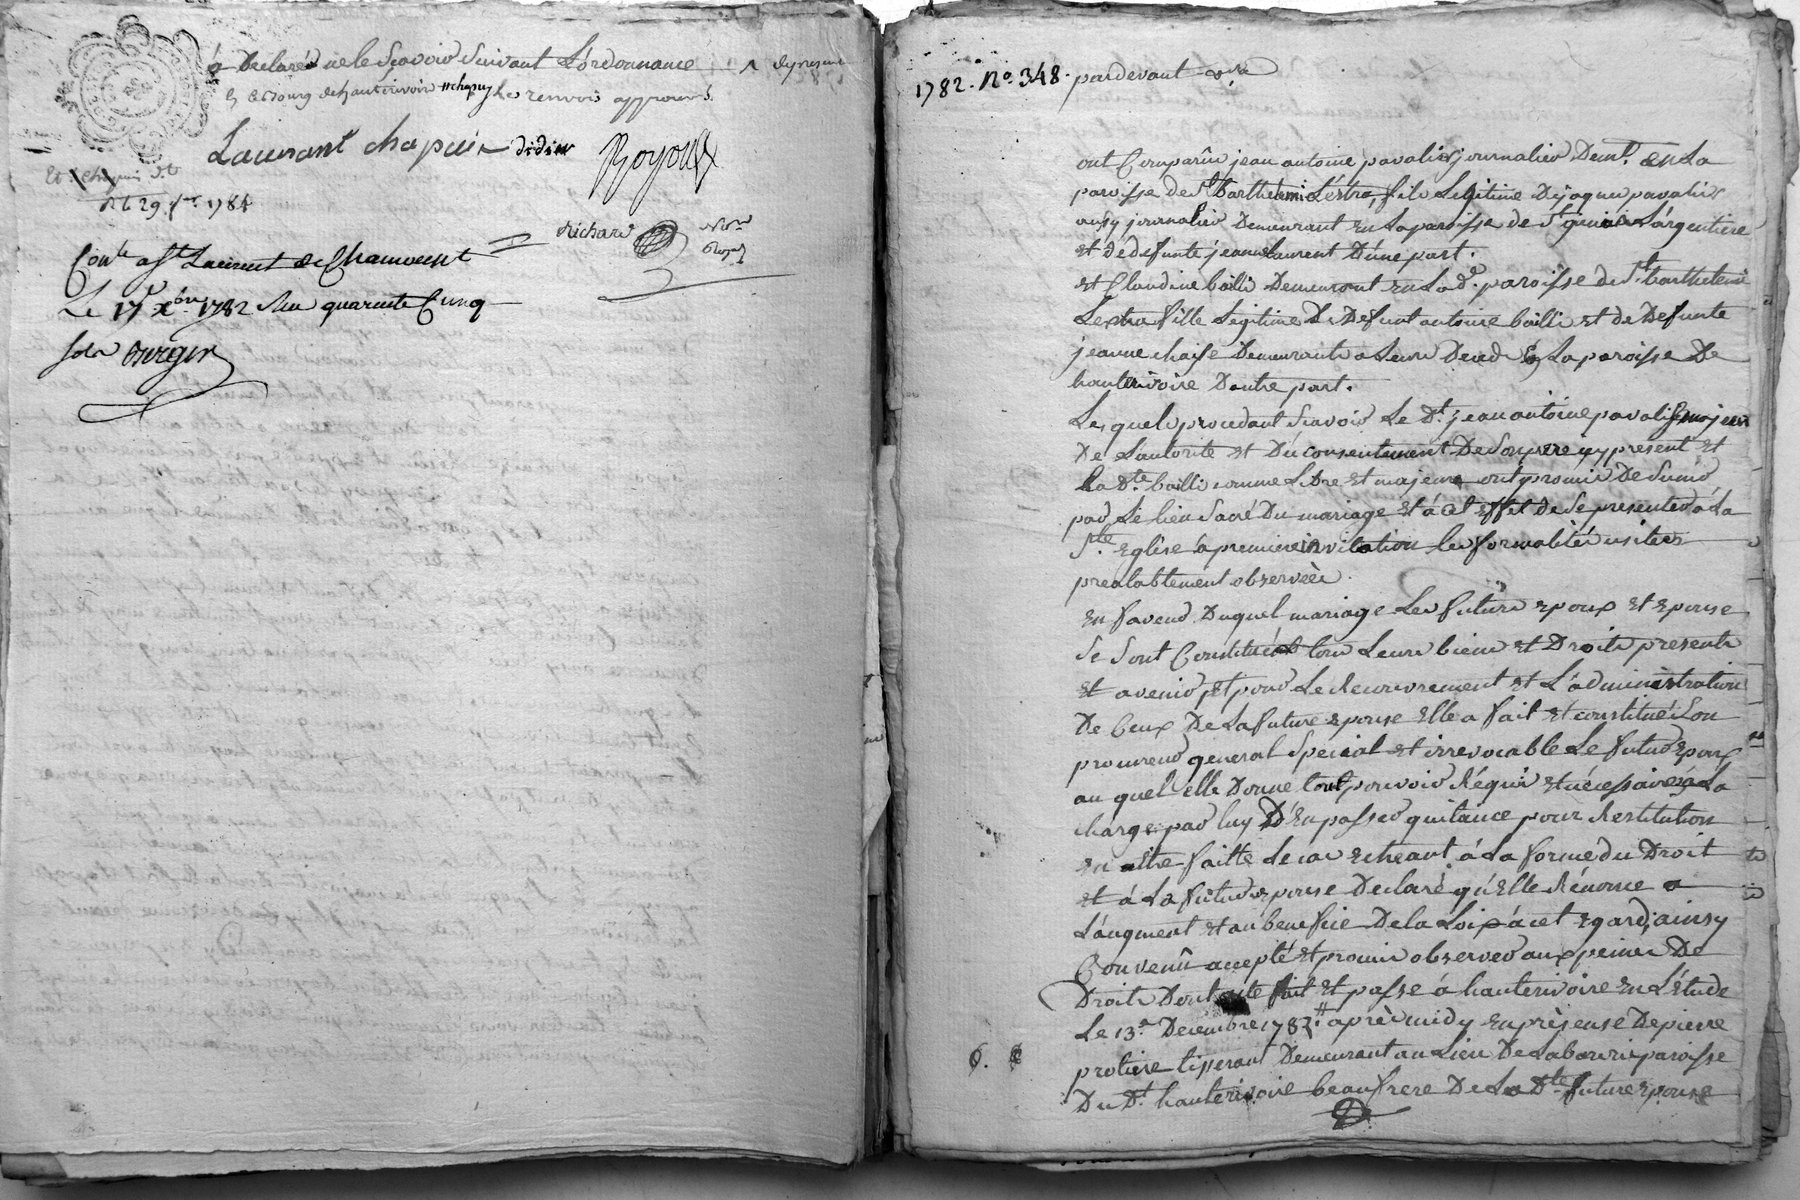 o Declaré ne le Scavoir Suivant L'ordonnance
Les renvois approuvés
Laurant chapuis didier Royoux
Et. chapuis
29 1784
richard Nre Royal
Conlé a St Laurent de Chamousset
Le 17 xbre 1782 Reçu quarante Cinq
sols Berger
1782. No. 348. pardevant &ra
ont Comparû jean antoine pavalier journalier Demt. en la
paroisse de St Barthelemi Léstra, fils Legitime De jaques pavalier
aussy journalier Demeurant en la paroisse de St genis L'argentiere
et de defunte jeanne Laurent D'une part.
et Claudine bailli Demeurant en la de. paroisse de St barthelemi
Lestra fille Legitime de Defunt antoine bailli et de Defunte
jeanne chaise Demeurants a Leurs Deceds en La paroisse De
hauterivoire Dautre part.
Les quels procedant Scavoir Le Dt. jean antoine pavalier majeur
De Lautorité et Du consentement De Son pere icy present et
La Dte. bailli comme Libre et majeure ont promis De S'unir
par Le lien Sacré Du mariage et á cet effet de Se presenter á La
Ste. Eglise á premiere invitation les formalités usitées
prealablement observées.
En faveur Duquel mariage Les futurs epoux et epouse
Se Sont Constitués tous Leurs biens et Droits presents
et avenir, et pour Le Recouvrement et L'administration
De Ceux De La future epouse elle a fait et constitué Son
procureur general Special et irrevocable Le futur epoux
au quel elle Donne tout pouvoir Réquis et nécessaire a La
charge par luy D'En passer quitance pour Restitution
en être faitte Le cas echeant á La forme du Droit
et á La future epouse Declaré qu'Elle Rénonce a
L'augment et au benefice De la Loix á cet egard; ainsy
Convenû accepté et promis observer aux peines De
Droits Dont acte fait et passé á hauterivoire en L'étude
Le 13e. Decembre 1782. après midy en présence De pierre
protiere tisserant Demeurant au Lieu De Laborie paroisse
Du Dt. hauterivoire beaufrere De La Dte future epouse